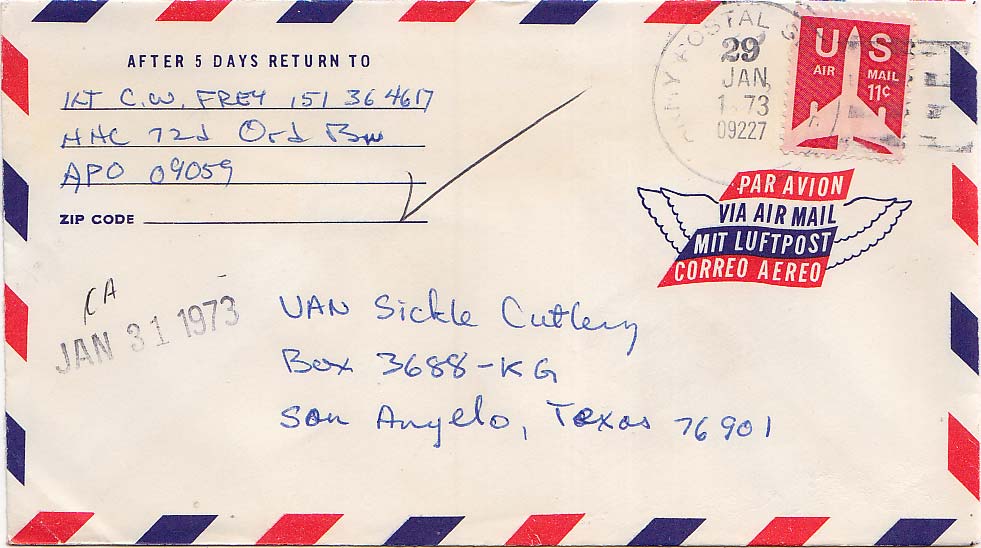 AFTER 5 DAYS RETURN TO
1LT C.W. FREY 151 36 4617
HHC 72d Ord Bn
APO 09059
ZIP CODE
ARMY POSTAL S
29
JAN
1973
09227
U S
AIR MAIL
11¢
PAR AVION
VIA AIR MAIL
MIT LUFTPOST
CORREO AEREO
KA
JAN 31 1973
VAN Sickle Cutlery
Box 3688-KG
San Angelo, Texas 76901